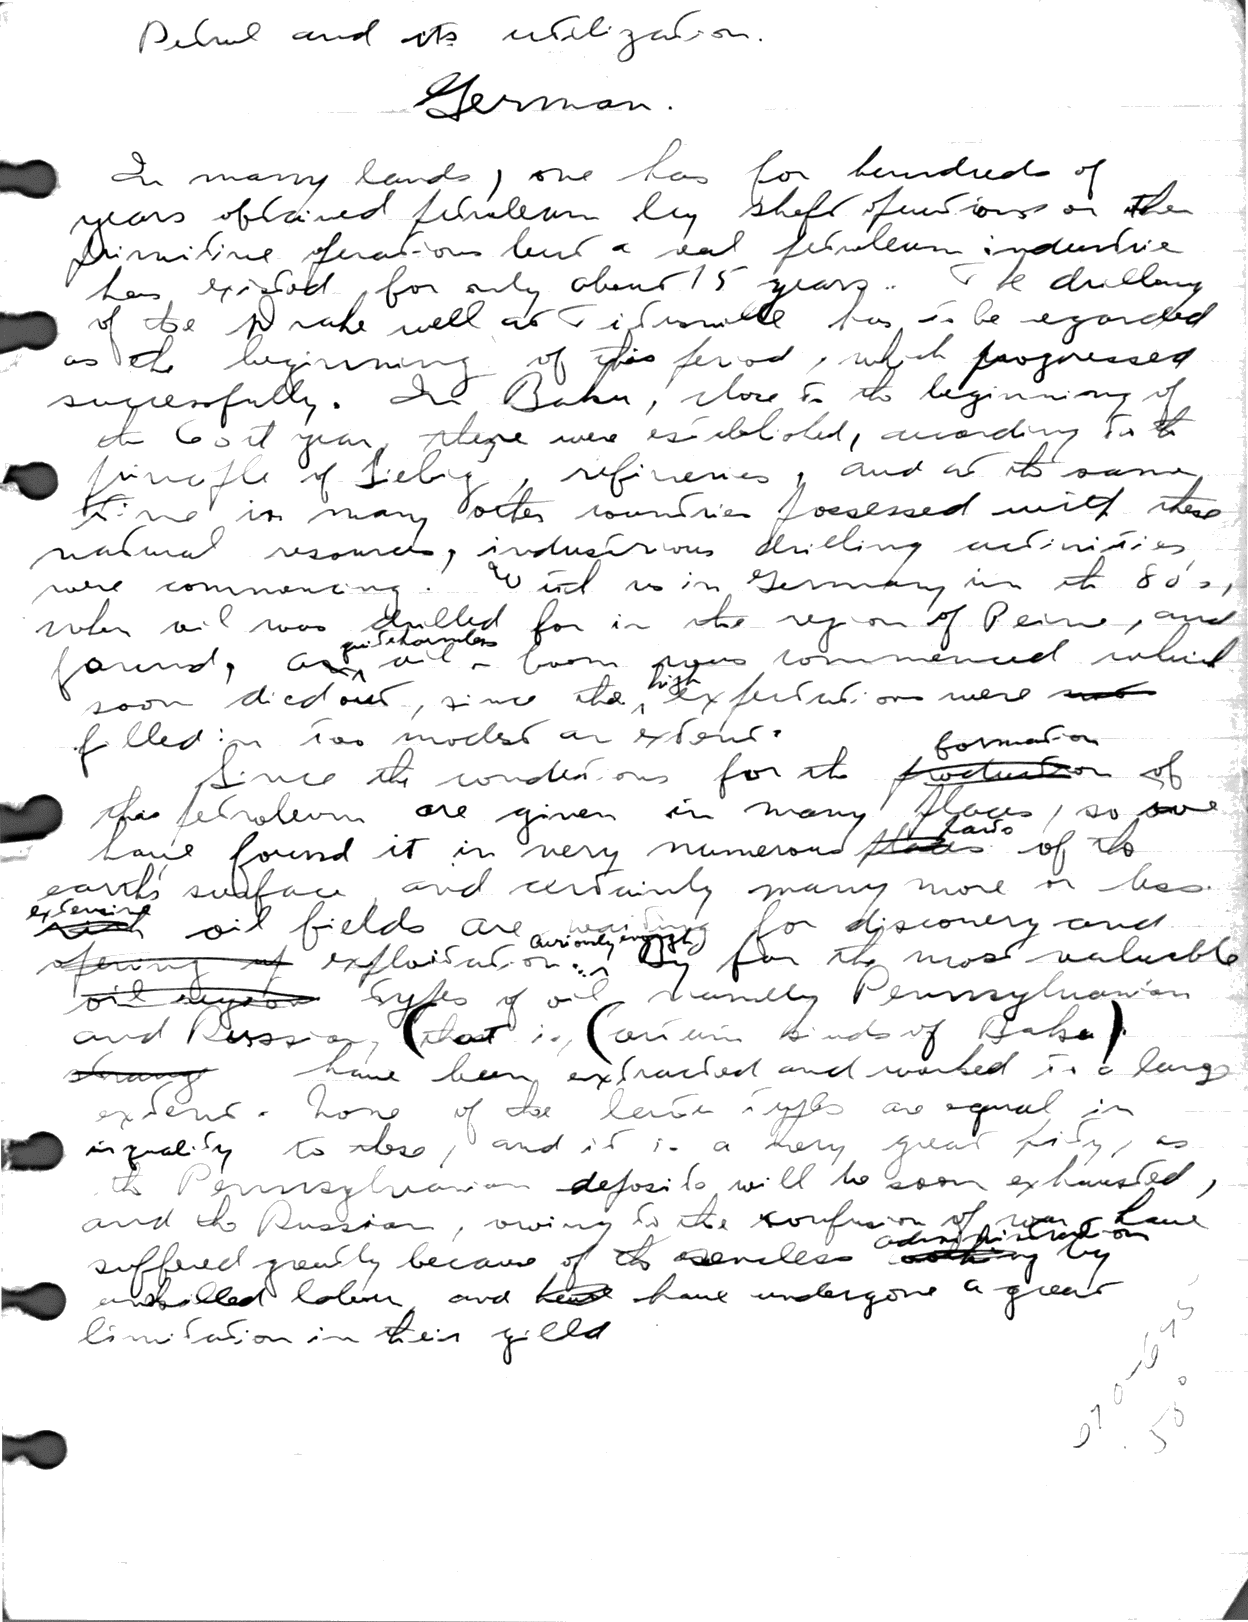 Petrol and its utilization.
German.
In many lands, one has for hundreds of
years obtained petroleum by shaft operations or other
primitive operations but a real petroleum industrie
has existed for only about 75 years. The drilling
of the Drake well at Titusville has to be regarded
as the beginning of this period, which progressed
successfully. In Baku, close to the beginning of
the 60st year, there were established, according to the
principle of Liebig, refineries, and at the same
time in many other countries possessed with these
natural resources, industrious drilling activities
were commencing. With us in Germany in the 80's,
when oil was drilled for in the region of Peine, and
quite harmless
found, an oil-boom was commenced which
high
soon died out, since the expectations were not
filled in too modest an extent.
formation
Since the conditions for the production of
this petroleum are given in many places, so we
parts
have found it in very numerous places of the
earth's surface, and certainly many more or less
extensive
rich oil fields are waiting for discovery and
curiously enough,
opening up exploitation. By far the most valuable
oil types of oil, namely Pennsylvanian
and Russian, (that is, (certain kinds of Baku)
strange have been extracted and worked to a large
extent. None of the later types are equal in
in quality to these, and it is a very great pity, as
the Pennsylvanian deposits will be soon exhausted,
and the Russian, owing to the confusion of war, have
administration
suffered greatly because of the senseless working by
unskilled labour, and have have undergone a great
limitation in their yield
670-675
500